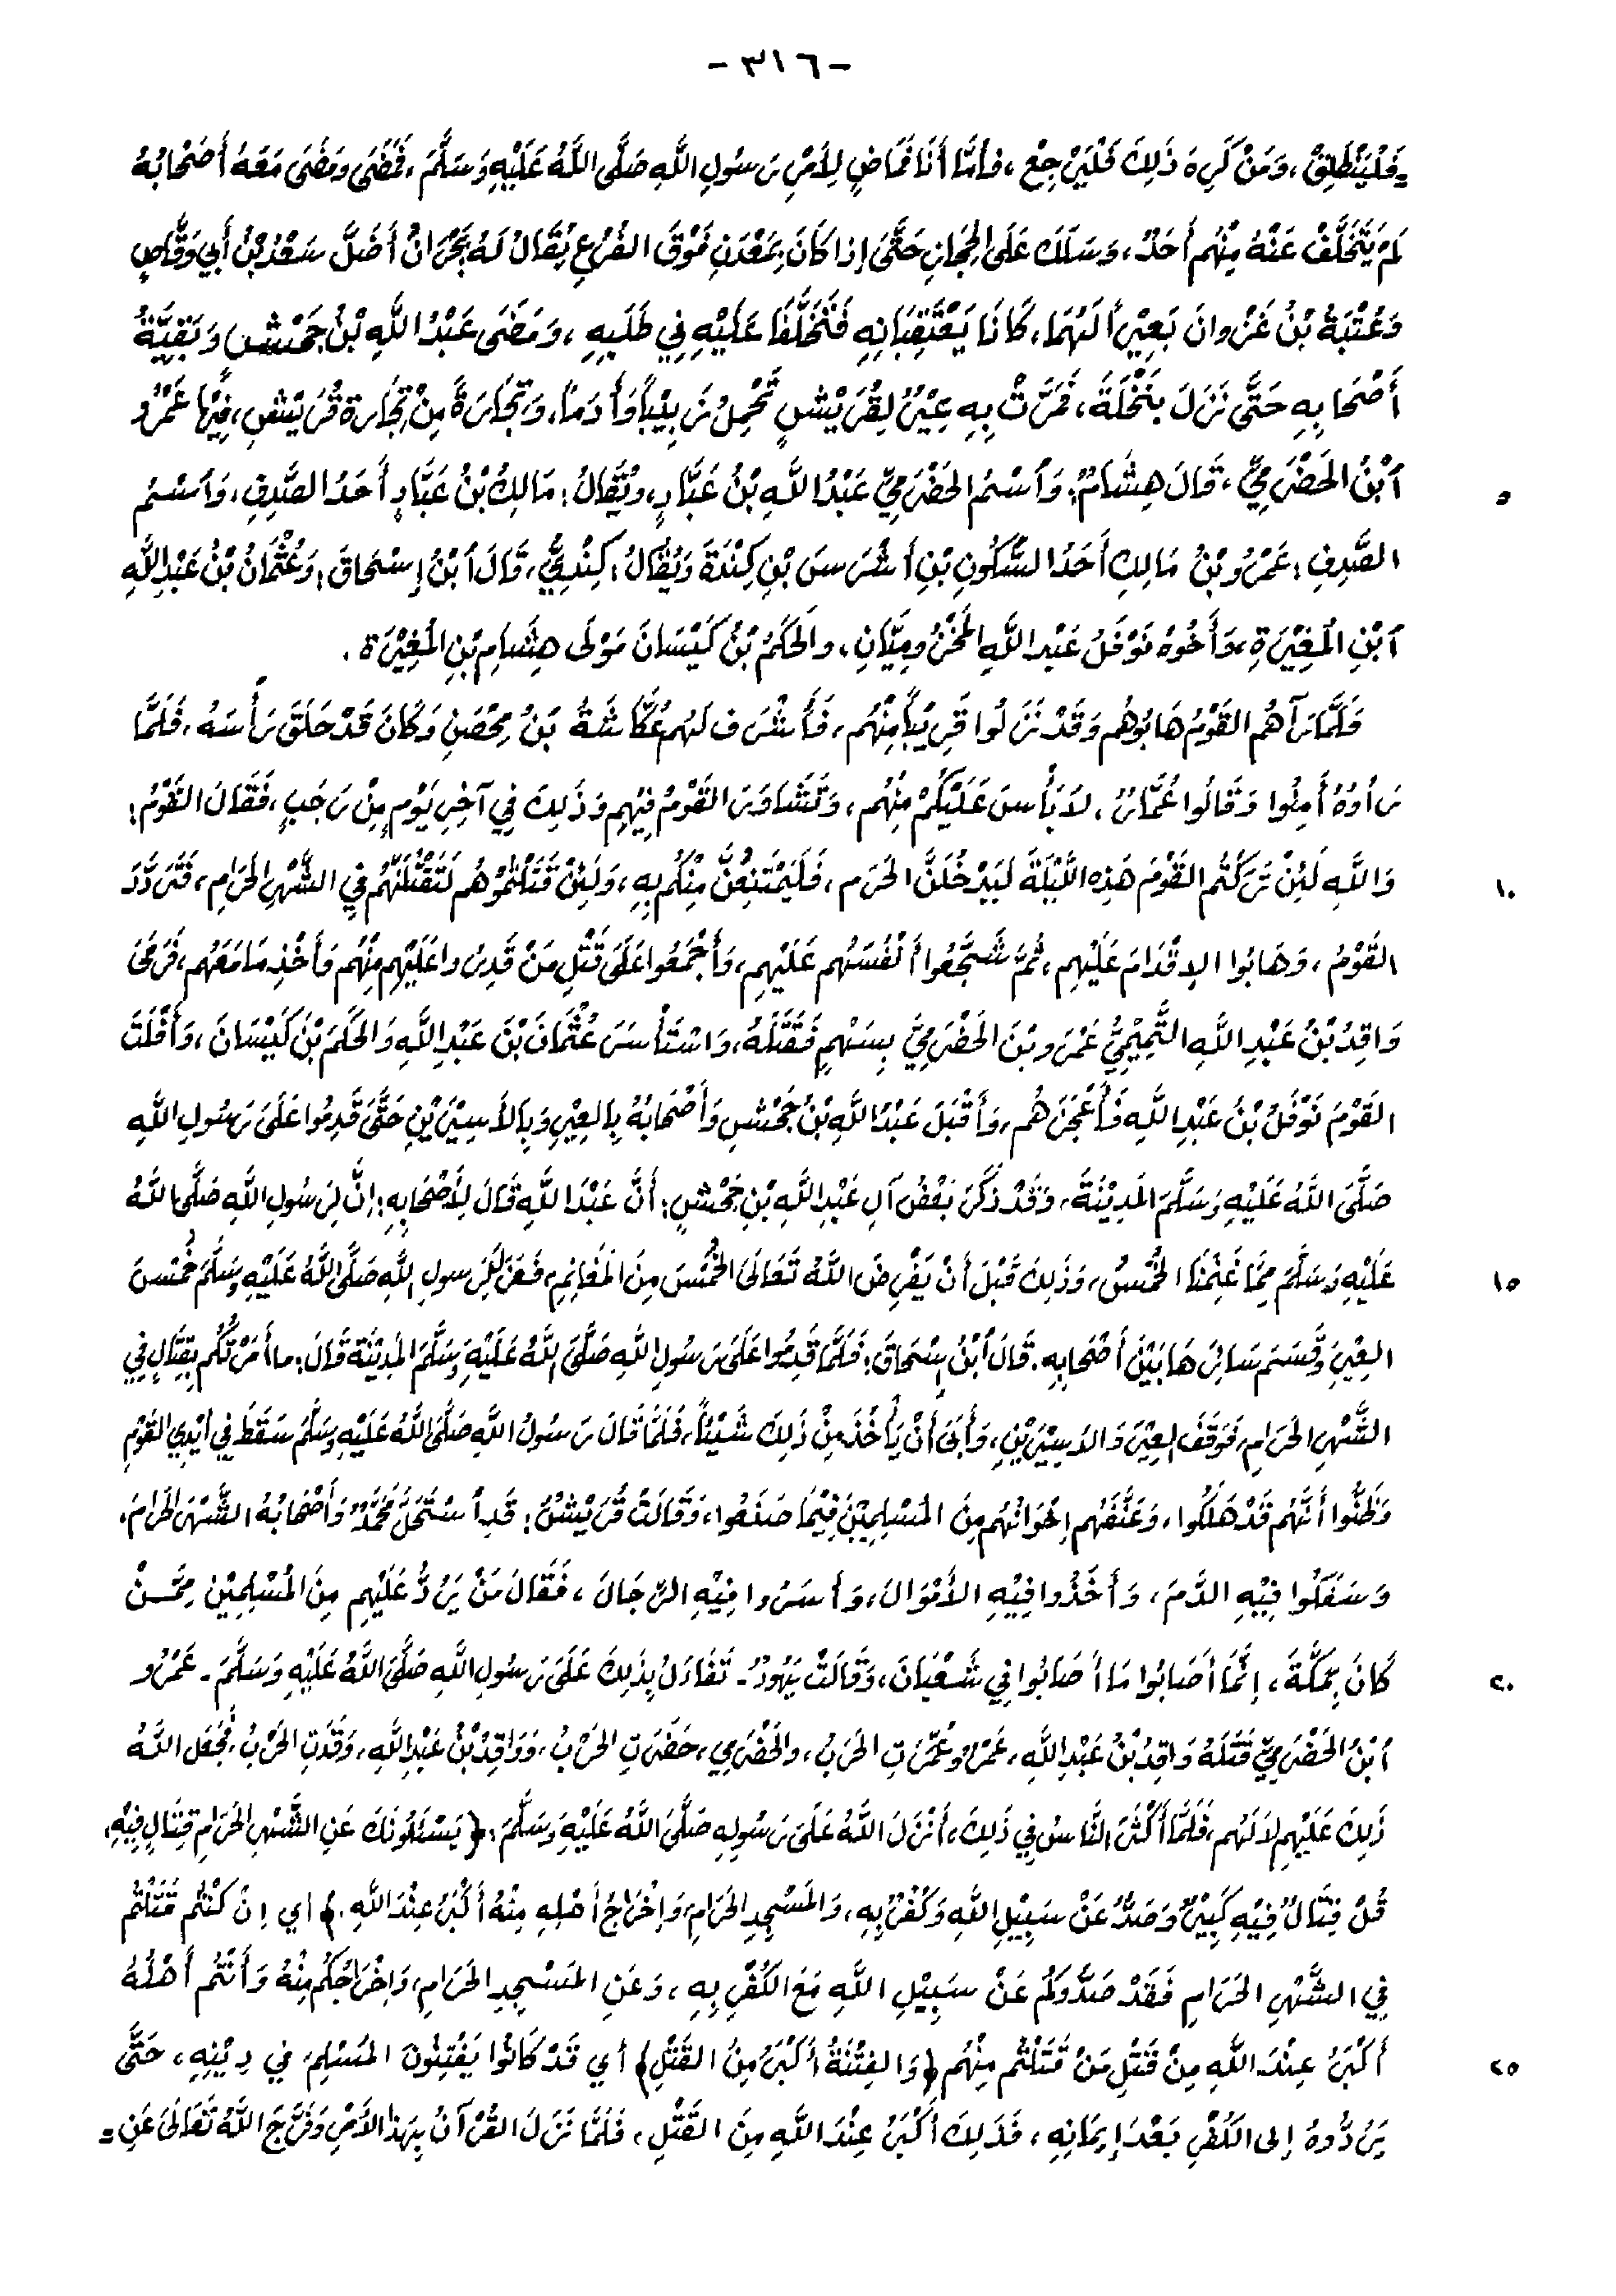 - ٣١٦ -
= فَلْيَنْطَلِقْ، وَمَنْ كَرِهَ ذَلِكَ فَلْيَرْجِعْ، فأَمَّا أَنَا فَمَاضٍ لِأَمْرِ رَسُولِ اللَّهِ صَلَّى اللَّهُ عَلَيْهِ وَسَلَّمَ، فَمَضَى وَمَضَى مَعَهُ أَصْحَابُهُ
لَمْ يَتَخَلَّفْ عَنْهُ مِنْهُم أَحَدٌ، وَسَلَكَ عَلَى الحِجَازِ حَتَّى إذا كَانَ بِمَعْدَنٍ فَوْقَ الفُرْعِ يُقَالُ لَهُ بَحْرَانُ أَضَلَّ سَعْدُ بْنُ أَبِي وَقَّاصٍ
وَعُتْبَةُ بْنُ غَزْوانَ بَعِيْراً لَهُمَا، كَانَا يَعْتَقِبَانِهِ فَتَخَلَّفَا عَلَيْهِ فِي طَلَبِهِ، وَمَضَى عَبْدُ اللَّهِ بْنُ جَحْشٍ وَبَقِيَّةُ
أَصْحَابِهِ حَتَّى نَزَلَ بِنَخْلَةَ، فَمَرَّتْ بِهِ عِيْرٌ لِقُرَيْشٍ تَحْمِلُ زَبِيْباً وَأَدَماً، وَتِجَارَةً مِنْ تِجَارَةِ قُرَيْشٍ، فِيْهَا عَمْرُو
ٱبْنُ الحَضْرَمِيِّ، قَالَ هِشَامٌ: وَٱسْمُ الحَضْرَمِيِّ عَبْدُ اللَّهِ بْنُ عَبَّادٍ، وَيُقَالُ: مَالِكُ بْنُ عَبَّادٍ أَحَدُ الصَّدِفِ، وَٱسْمُ
الصَّدِفِ: عَمْرُو بْنُ مَالِكِ أَحَدُ السَّكُونِ بْنِ أَشْرَسَ بْنِ كِنْدَةَ وَيُقَالُ: كِنْدِيٌّ، قَالَ ٱبْنُ إِسْحَاقَ: وَعُثْمَانُ بْنُ عَبْدِ اللَّهِ
ٱبْنِ المُغِيْرَةِ، وَأَخُوهُ نَوْفَلُ عَبْدِ اللَّهِ المَخْزُومِيَّانِ، والحَكَمُ بْنُ كَيْسَانَ مَوْلَى هِشَامِ بْنِ المُغِيْرَة.
فَلَمَّا رَآهُم القَوْمُ هَابُوهُم وَقَدْ نَزَلُوا قَرِيْباً مِنْهُم، فَأَشْرَفَ لَهُم عُكَّاشَةُ بْنُ مِحْصَنٍ وَكَانَ قَدْ حَلَقَ رَأْسَهُ، فَلَمَّا
رَأوْهُ أَمِنُوا وَقَالُوا عُمَّارٌ، لاَ بَأْسَ عَلَيْكُمْ مِنْهُم، وَتَشَاوَرَ القَوْمُ فِيْهِم وَذَلِكَ فِي آخِرِ يَوْمٍ مِنْ رَجَبٍ، فَقَالَ القَوْمُ:
وَاللَّهِ لَئِنْ تَرَكْتُم القَوْمَ هَذِهِ اللَّيْلَةَ لَيَدْخُلَنَّ الحَرَم، فَلَيَمْتَنِعُنَّ مِنْكُم بِهِ، وَلَئِنْ قَتَلْتُمُوهُم لَتَقْتُلُنَّهُم فِي الشَّهْرِ الحَرَامِ، فَتَرَدَّدَ
١٠
القَوْمُ، وَهَابُوا الإِقْدَامَ عَلَيْهِم، ثُمَّ شَجَّعُوا أَنْفُسَهُم عَلَيْهِم، وَأَجْمَعُوا عَلَى قَتْلِ مَنْ قَدِرُوا عَلَيْهِم مِنْهُم وَأَخْذِ مَا مَعَهُم، فَرَمَى
وَاقِدُ بْنُ عَبْدِ اللَّهِ التَّمِيْمِيُّ عَمْرَو بْنَ الحَضْرَمِيِّ بِسَهْمٍ فَقَتَلَهُ، وَاسْتَأْسَرَ عُثْمَانَ بْنَ عَبْدِ اللَّهِ وَالحَكَمَ بْنَ كَيْسَانَ، وَأَفْلَتَ
القَوْمَ نَوْفَلُ بْنُ عَبْدِ اللَّهِ فَأَعْجَزَهُم، وَأَقْبَلَ عَبْدُ اللَّهِ بْنُ جَحْشٍ وَأَصْحَابُهُ بِالعِيْرِ وَبِالأَسِيْرَيْنِ حَتَّى قَدِمُوا عَلَى رَسُولِ اللَّهِ
صَلَّى اللَّهُ عَلَيْهِ وَسَلَّمَ المَدِيْنَةَ، وَقَدْ ذَكَرَ بَعْضُ آلِ عَبْدِ اللَّهِ بْنِ جَحْشٍ: أَنَّ عَبْدَ اللَّهِ قَالَ لِأَصْحَابِهِ: إِنَّ لِرَسُولِ اللَّهِ صَلَّى اللَّهُ
عَلَيْهِ وَسَلَّمَ مِمَّا غَنِمْنَا الخُمُسُ، وَذَلِكَ قَبْلَ أَنْ يَفْرِضَ اللَّهُ تَعَالَى الخُمُسَ مِنَ المَغَانِمِ، فَعَزَلَ لِرَسولِ اللَّهِ صَلَّى اللَّهُ عَلَيْهِ وَسَلَّمَ خُمُسَ
١٥
العِيْرِ وَقَسَمَ سَائِرَهَا بَيْنَ أَصْحَابِهِ. قَالَ ٱبْنُ إِسْحَاقَ: فَلَمَّا قَدِمُوا عَلَى رَسُولِ اللَّهِ صَلَّى اللَّهُ عَلَيْهِ وَسَلَّمَ المَدِيْنَةَ قَالَ: ما أَمَرْتُكُم بِقِتَالٍ فِي
الشَّهْرِ الحَرَامِ، فَوَقَفَ العِيْرَ وَالأَسِيْرَيْنِ، وَأَبَى أَنْ يَأْخُذَ مِنْ ذَلِكَ شَيْئاً، فَلَمَّا قَالَ رَسُولُ اللَّهِ صَلَّى اللَّهُ عَلَيْهِ وَسَلَّمَ سَقَطَ فِي أَيْدِي القَوْمِ
وَظَنُّوا أَنَّهُم قَدْ هَلَكُوا، وَعَنَّفَهُم إِخْوَانُهُم مِنَ المُسْلِمِيْنَ فِيْمَا صَنَعُوا، وَقَالَتْ قُرَيْشٌ: قَدِ ٱسْتَحَلَّ مُحَمَّدٌ وَأَصْحَابُهُ الشَّهْرَ الحَرَامَ،
وَسَفَكُوا فِيْهِ الدَّمَ، وَأَخَذُوا فِيْهِ الأَمْوَالَ، وَأَسَرُوا فِيْهِ الرِّجَالَ، فَقَالَ مَنْ يَرُدُّ عَلَيْهِم مِنَ المُسْلِمِيْن مِمَّنْ
كَانَ بِمَكَّةَ، إِنَّمَا أَصَابُوا مَا أَصَابُوا فِي شَعْبَانَ، وَقَالَتْ يَهُودُ - تَفَاءَلُ بِذَلِكَ عَلَى رَسُولِ اللَّهِ صَلَّى اللَّهُ عَلَيْهِ وَسَلَّمَ - عَمْرُو
٢٠
ٱبْنُ الحَضْرَمِيِّ قَتَلَهُ وَاقِدُ بْنُ عَبْدِ اللَّهِ، عَمْرٌو عُمِّرَتِ الحَرْبُ، والحَضْرَمِي، حَضَرَتِ الحَرْبُ، وَوَاقِدُ بْنُ عَبْدِ اللَّهِ، وَقَدَتِ الحَرْبُ، فَجَعَلَ اللَّهُ
ذَلِكَ عَلَيْهِم لاَ لَهُم، فَلَمَّا أَكْثَرَ النَّاسُ فِي ذَلِكَ، أَنْزَلَ اللَّهُ عَلَى رَسُولِهِ صَلَّى اللَّهُ عَلَيْهِ وَسَلَّمَ: ﴿يَسْئَلُونَكَ عَنِ الشَّهْرِ الحَرَامِ قِتَالٍ فِيْهِ،
قُلْ قِتَالٌ فِيْهِ كَبِيْرٌ وَصَدٌّ عَنْ سَبِيْلِ اللَّهِ وَكُفْرٌ بِهِ، وَالمَسْجِدِ الحَرَامِ، وَإِخْرَاجُ أَهْلِهِ مِنْهُ أَكْبَرُ عِنْدَ اللَّهِ.﴾ اي إنْ كُنْتُم قَتَلْتُم
فِي الشَّهْرِ الحَرَامِ فَقَدْ صَدُّوكُم عَنْ سَبِيْلِ اللَّهِ مَعَ الكُفْرِ بِهِ، وَعَنِ المَسْجِدِ الحَرَامِ، وَإِخْرَاجُكُم مِنْهُ وَأَنْتُم أَهْلُهُ
أَكْبَرُ عِنْدَ اللَّهِ مِنْ قَتْلِ مَنْ قَتَلْتُم مِنْهُم ﴿وَالفِتْنَةُ أَكْبَرُ مِنَ القَتْلِ﴾ أي قَدْ كَانُوا يَفْتِنُونَ المُسْلِمَ فِي دِيْنِهِ، حَتَّى
٢٥
يَرُدُّوهُ إلى الكُفْرِ بَعْدَ إِيمَانِهِ، فَذَلِكَ أَكْبَرُ عِنْدَ اللَّهِ مِنَ القَتْلِ، فَلَمَّا نَزَلَ القُرْآنُ بِهَذا الأَمْرِ وَفَرَّجَ اللَّهُ تَعَالَى عَنِ =